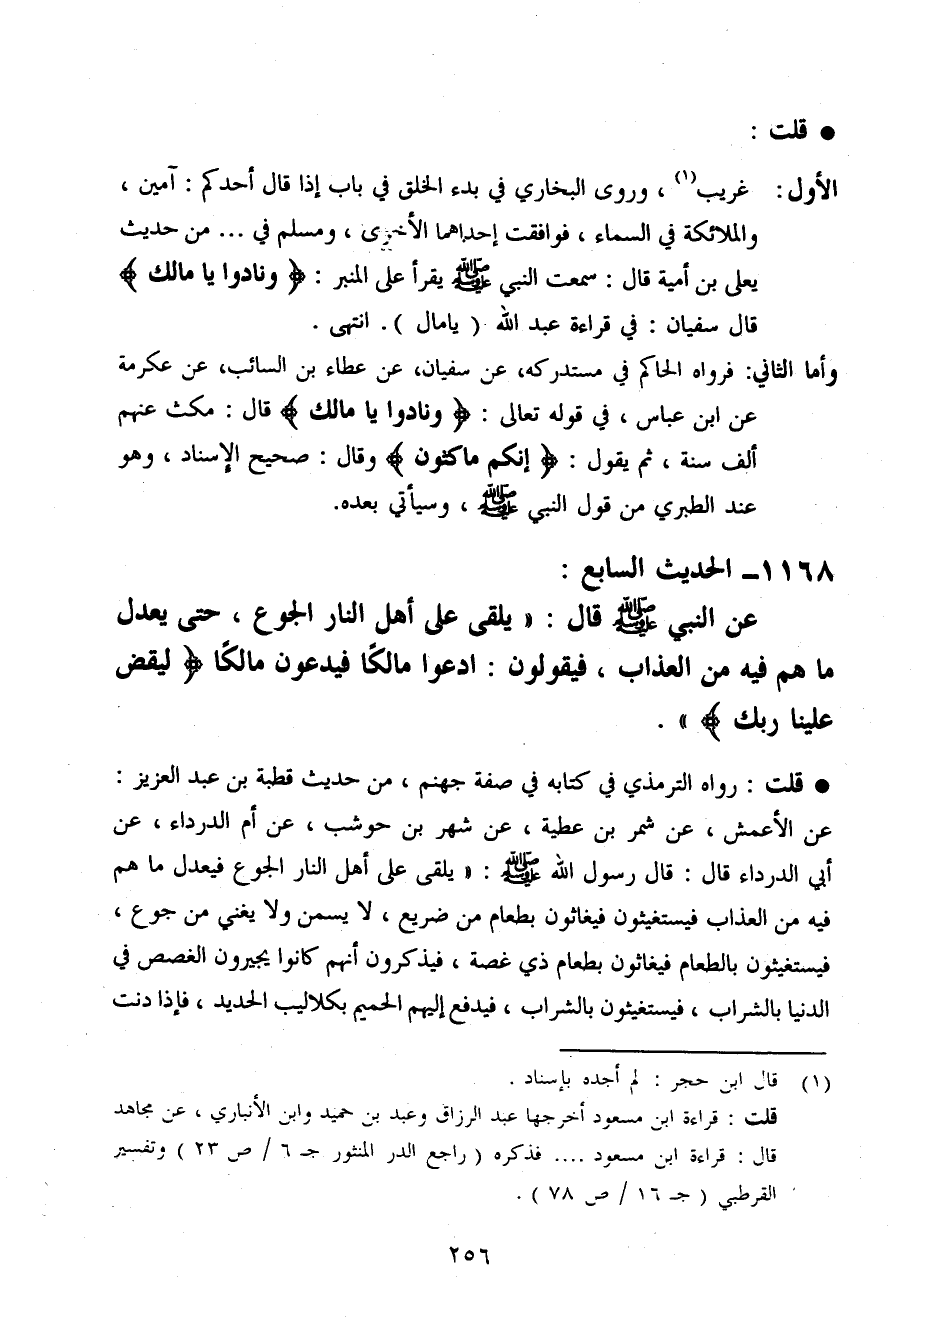 ● قلت :
الأول: غريب(١) ، وروى البخاري في بدء الخلق في باب إذا قال أحدكم : آمين ،
والملائكة في السماء ، فوافقت إحداهما الأخرى ، ومسلم في ... من حديث
يعلى بن أمية قال : سمعت النبي ﷺ يقرأ على المنبر : ﴿ ونادوا يا مالك ﴾
قال سفيان : في قراءة عبد الله ( يامال ) . انتهى .
وأما الثاني: فرواه الحاكم في مستدركه، عن سفيان، عن عطاء بن السائب، عن عكرمة
عن ابن عباس ، في قوله تعالى : ﴿ ونادوا يا مالك ﴾ قال : مكث عنهم
ألف سنة ، ثم يقول : ﴿ إنكم ماكثون ﴾ وقال : صحيح الإسناد ، وهو
عند الطبري من قول النبي ﷺ ، وسيأتي بعده.
١١٦٨ـ الحديث السابع :
عن النبي ﷺ قال : « يلقى على أهل النار الجوع ، حتى يعدل
ما هم فيه من العذاب ، فيقولون : ادعوا مالكًا فيدعون مالكًا ﴿ ليقض
علينا ربك ﴾ » .
● قلت : رواه الترمذي في كتابه في صفة جهنم ، من حديث قطبة بن عبد العزيز :
عن الأعمش ، عن شمر بن عطية ، عن شهر بن حوشب ، عن أم الدرداء ، عن
أبي الدرداء قال : قال رسول الله ﷺ : « يلقى على أهل النار الجوع فيعدل ما هم
فيه من العذاب فيستغيثون فيغاثون بطعام من ضريع ، لا يسمن ولا يغني من جوع ،
فيستغيثون بالطعام فيغاثون بطعام ذي غصة ، فيذكرون أنهم كانوا يجيرون الغصص في
الدنيا بالشراب ، فيستغيثون بالشراب ، فيدفع إليهم الحميم بكلاليب الحديد ، فإذا دنت
(١) قال ابن حجر : لم أجده بإسناد .
قلت : قراءة ابن مسعود أخرجها عبد الرزاق وعبد بن حميد وابن الأنباري ، عن مجاهد
قال : قراءة ابن مسعود .... فذكره ( راجع الدر المنثور جـ ٦ / ص ٢٣ ) وتفسير
القرطبي ( جـ ١٦ / ص ٧٨ ) .
٢٥٦